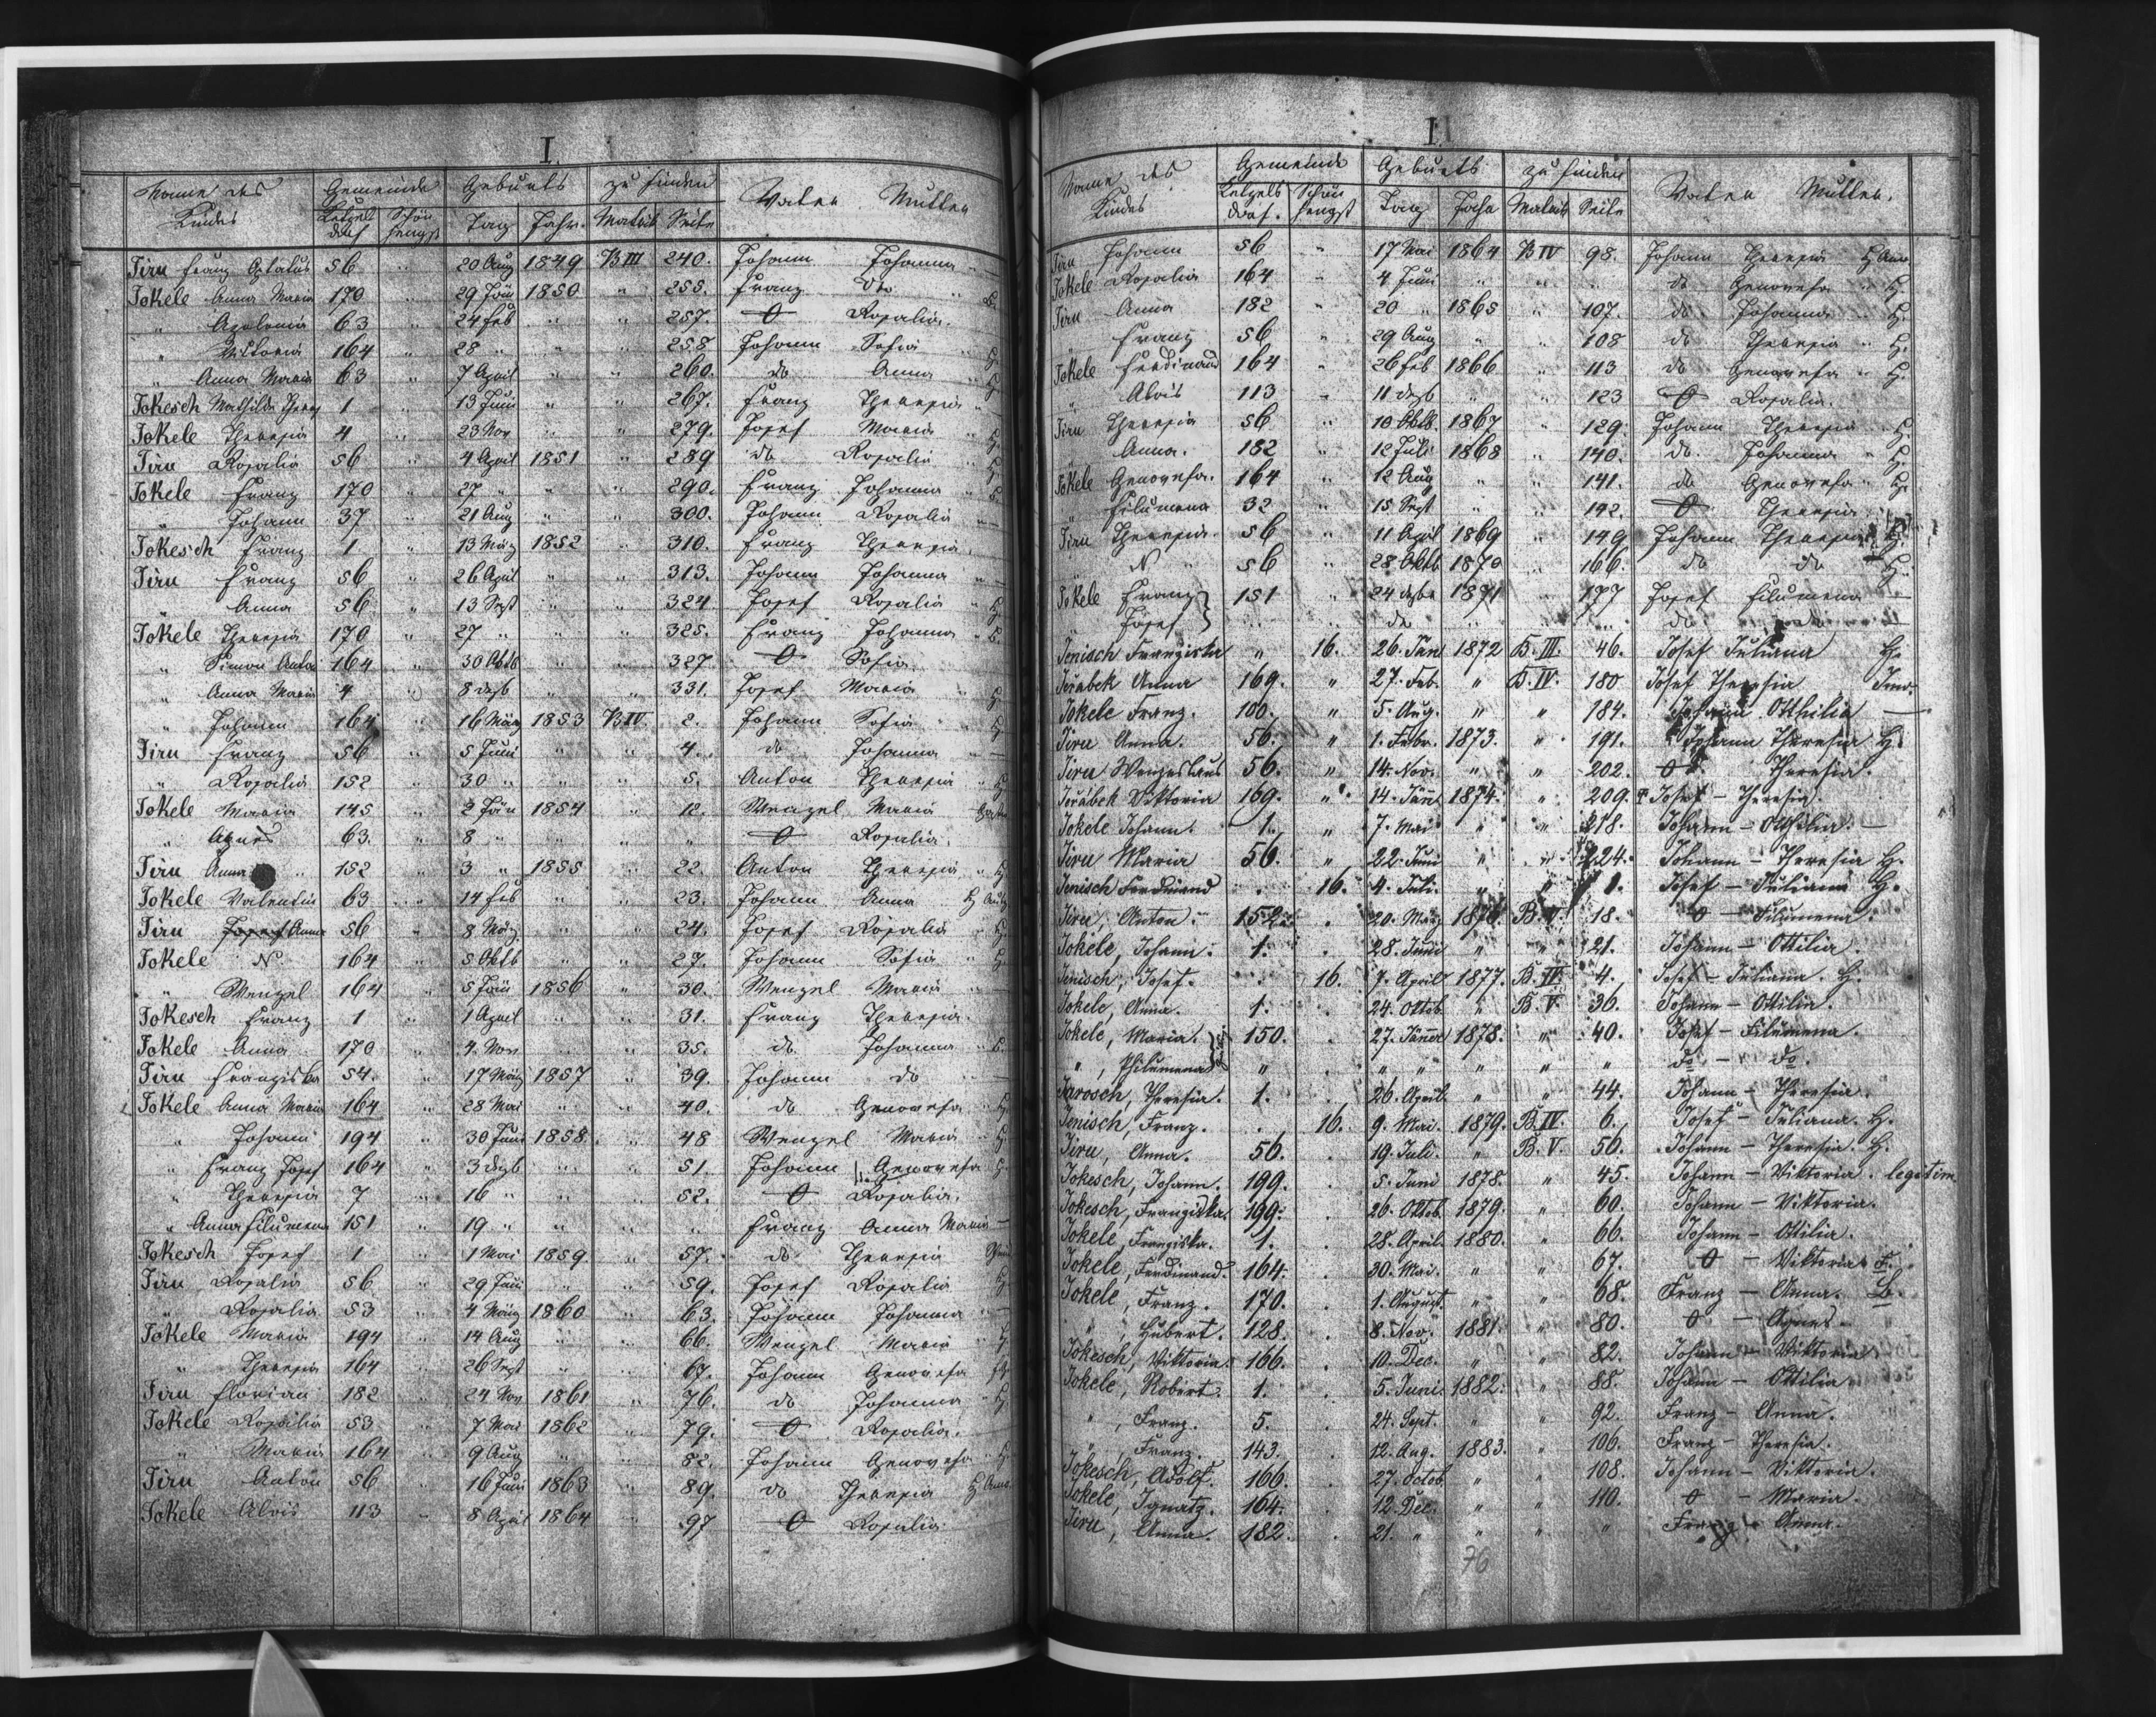 I.
Name des Kindes Gemeinde Geburts zu finden Vater Mutter
Ketzelsdorf Schönhengst Tag Jahr. Matrik Seite
Jiru Franz Optatus 56 " 20 Aug 1849 B III 240. Johann Johanna " —
Jokele Anna Maria 170 " 29 Jän 1850 " 255. Franz do " B.
" Apolonia 63 " 24 Feb " " 257. O Rosalia.
" Viktoria 164 " 28 " " " 258. Johann Sofia " H.
" Anna Maria 63 " 7 April " " 260. do Anna " H.
Jokesch Mathilde Theres 1 " 13 Juni " " 267. Franz Theresia " —
Jokele Theresia 4 " 23 Nov " " 279. Josef Maria " H.
Jiru Rosalia 56 " 4 April 1851 " 289 do Rosalia " H.
Jokele Franz 170 " 27 " " " 290. Franz Johanna " B.
" Johann 37 " 21 Aug " " 300. Johann Rosalia " —
Jokesch Franz 1 " 13 März 1852 " 310. Franz Theresia.
Jiru Franz 56 " 26 April " " 313. Johann Johanna " —
" Anna 56 " 13 Sept " " 324. Josef Rosalia " H.
Jokele Theresia 170 " 27 " " " 325. Franz Johanna " B.
" Simon Anton 164 " 30 Oktb " " 327. O Sofia.
" Anna Maria 4 " 8 dezb " " 331. Josef Maria " H
" Johann 164 " 16 März 1853 B IV. 2. Johann Sofia " H
Jiru Franz 56 " 5 Juni " " 4. do Johanna " —
" Rosalia 152 " 30 " " " 5. Anton Theresia " H
Jokele Maria 145 " 2 Jän 1854 " 12. Wenzel Maria
" Agnes 63. " 8 " " " " O Rosalia.
Jiru Anna " 152 " 3 " 1855 " 22. Anton Theresia " H
Jokele Valentin 63 " 14 Feb " " 23. Johann Anna H
Jiru Josef Anna 56 " 8 März " " 24. Josef Rosalia " H
Jokele N 164 " 5 Oktb " " 27. Johann Sofia " H
" Wenzel 164 " 5 Jän 1856 " 30. Wenzel Maria " —
Jokesch Franz 1 " 1 April " " 31. Franz Theresia.
Jokele Anna 170 " 4. Nov " " 35. do Johanna " B.
Jiru Franziska 54. " 17 März 1857 " 39. Johann do " —
Jokele Anna Maria 164 " 28 Mai " " 40. do Genovefa " H
" Johann 194 " 30 Juni 1858. " 48 Wenzel Maria " H
" Franz Josef 164 " 3 dezb " " 51. Johann Genovefa H
" Theresia 7 " 16 " " " 52. O Rosalia.
" Anna Filumena 151 " 19 " " " " Franz Anna Maria —
Jokesch Josef 1 " 1 Mai 1859. " 57. do Theresia
Jiru Rosalia 56 " 29 Juni " " 59. Josef Rosalia H
" Rosalia 53 " 4 März 1860 " 63. Johann Johanna " —
Jokele Maria 194 " 14 Aug " " 66. Wenzel Maria " H
" Theresia 164 " 26 Sept " " 67. Johann Genovefa H
Jiru Florian 182 " 24 Nov 1861 " 76. do Johanna " H
Jokele Rosalia 53 " 7 Mai 1862 " 79. O Rosalia.
" Maria 164 " 9 Aug " " 82. Johann Genovefa " H
Jiru Anton 56 " 16 Juni 1863 " 89. do Theresia H Anna.
Jokele Alois 113 " 8 April 1864 " 97 O Rosalia
I.
Name des Kindes Gemeinde Geburts zu finden Vater Mutter.
Ketzelsdorf. Schönhengst Tag Jahr Matrik Seite
Jiru Johann 56 " 17 Mai 1864 B IV 98. Johann Theresia H Anna
Jokele Rosalia 164 " 4 Juni " " " do Genovefa " H
Jiru Anna 182 " 20 " 1865 " 107. do. Johanna " H.
" Franz 56 " 29 Aug " " 108 do Theresia " H.
Jokele Ferdinand 164 " 26 Feb 1866 " 113 do Genovefa " H.
" Alois 113 " 11 dezb " " 123 O Rosalia.
Jiru Theresia 56 " 10 Oktb. 1867 " 129. Johann Theresia " H.
" Anna. 182 " 12 Juli 1868 " 140. do. Johanna " H.
Jokele Genovefa. 164 " 12 Aug " " 141. do Genovefa " H.
" Filumena 32 " 15 Sept " " 142. O Theresia.
Jiru Theresia. 56 " 11 April 1869 " 149 Johann Theresia H.
" N " 56 " 28 Oktb 1870 " 166. do do H.
Jokele Franz } 151 " 24 dezbr 1871 " 177 Josef Filumena —
Josef } " " do " " " do. do —
Jenisch Franziska " 16. 26. Jän 1872 B. III. 46. Josef Juliana H.
Jeřabek Anna 169. " 27. Feb. " B. IV. 180 Josef Theresia
Jokele Franz. 100. " 5. Aug. " " 184. Johann Otthilia —
Jiru Anna. 56. " 1. Febr. 1873. " 191. Johann Theresia H.
Jiru Wenzeslaus 56. " 14. Nov. " " 202. O Theresia.
Jeřábek Viktoria 169. " 14. Jänn 1874. " 209. Josef – Theresia.
Jokele Johann. 1. " 7. Mai " " 218. Johann – Otthilia. —
Jiru Maria 56. " 22. Juni " " 224. Johann – Theresia H.
Jenisch Ferdinand . 16. 4. Juli. " " 1. Josef – Juliana H.
Jiru, Anton. 152. . 20. März 1876. B. V. 18. O – Filumena.
Jokele, Johann. 1. . 28. Juni " " 21. Johann – Ottilia.
Jenisch, Josef. . 16. 7. April 1877. B. IV. 4. Josef – Juliana. H.
Jokele, Anna. 1. . 24. Oktob. " B. V. 36. Johann – Ottilia.
Jokele, Maria. } 150. . 27. Jänner 1878. " 40. Josef – Filumena.
" , Philumena } " . " " " " " do. – do.
Jarosch, Theresia. 1. . 26. April. " " 44. Johann – Theresia.
Jenisch, Franz. . 16. 9. Mai. 1879. B. IV. 6. Josef – Juliana. H.
Jiru, Anna. 56. . 19. Juli. " B. V. 56. Johann – Theresia. H.
Jokesch, Johann. 199. . 5. Juni 1878. " 45. Johann – Viktoria. legitim
Jokesch, Franziska. 199. . 26. Oktob. 1879. " 60. Johann – Viktoria.
Jokele, Franziska. 1. . 28. April. 1880. " 66. Johann – Ottilia.
Jokele, Ferdinand. 164. . 30. Mai. " " 67. O – Viktoria. F.
Jokele, Franz. 170. . 1. August. " " 68. Franz – Anna. B.
" , Hubert. 128. . 8. Nov. 1881. " 80. O – Agnes.
Jokesch, Viktoria. 166. . 10. Dec. " " 82. Johann – Viktoria
Jokele, Robert. 1. . 5. Juni. 1882. " 88. Johann – Ottilia.
" , Franz. 5. . 24. Sept. " " 92. Franz – Anna.
" , Franz. 143. . 12. Aug. 1883. " 106. Franz – Theresia.
Jokesch, Adolf. 166. . 27. Octob. " " 108. Johann – Viktoria.
Jokele, Ignatz. 164. . 12. Dec. " " 110. O – Maria.
Jiru, Anna. 182. . 21. " " " " Franz – Anna.
76